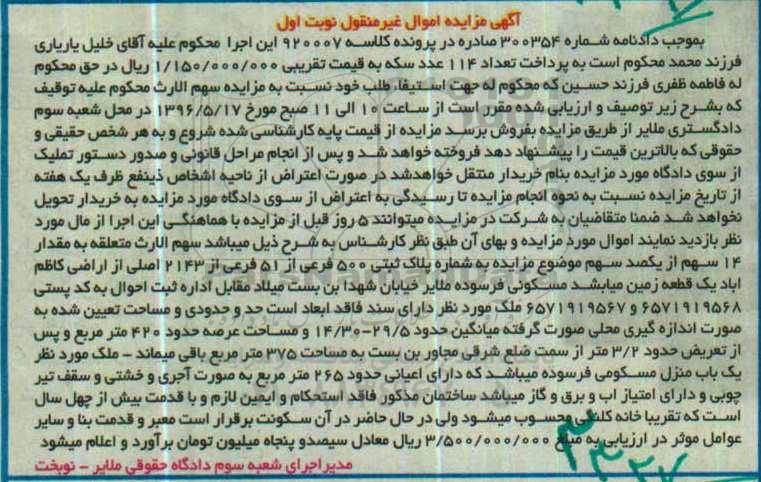 آگهی مزایده اموال غیرمنقول نوبت اول
بموجب دادنامه شماره ۳۰۰۳۵۴ صادره در پرونده کلاسه ۹۲۰۰۰۷ این اجرا محکوم علیه آقای خلیل یاریاری
فرزند محمد محکوم است به پرداخت تعداد ۱۱۴ عدد سکه به قیمت تقریبی ۱/۱۵۰/۰۰۰/۰۰۰ ریال در حق محکوم
له فاطمه ظفری فرزند حسین که محکوم له جهت استیفا، طلب خود نسبت به مزایده سهم الارث محکوم علیه توقیف
که بشرح زیر توصیف و ارزیابی شده مقرر است از ساعت ۱۰ الی ۱۱ صبح مورخ ۱۳۹۶/۵/۱۷ در محل شعبه سوم
دادگستری ملایر از طریق مزایده بفروش برسد مزایده از قیمت پایه کارشناسی شده شروع و به هر شخص حقیقی و
حقوقی که بالاترین قیمت را پیشنهاد دهد فروخته خواهد شد و پس از انجام مراحل قانونی و صدور دستور تملیک
از سوی دادگاه مورد مزایده بنام خریدار منتقل خواهدشد در صورت اعتراض از ناحیه اشخاص ذینفع ظرف یک هفته
از تاریخ مزایده نسبت به نحوه انجام مزایده تا رسیدگی به اعتراض از سوی دادگاه مورد مزایده به خریدار تحویل
نخواهد شد ضمنا متقاضیان به شرکت در مزایده میتوانند ۵ روز قبل از مزایده با هماهنگی این اجرا از مال مورد
نظر بازدید نمایند اموال مورد مزایده و بهای آن طبق نظر کارشناس به شرح ذیل میباشد سهم الارث متعلقه به مقدار
۱۴ سهم از یکصد سهم موضوع مزایده به شماره پلاک ثبتی ۵۰۰ فرعی از ۵۱ فرعی از ۲۱۴۳ اصلی از اراضی کاظم
اباد یک قطعه زمین میابشد مسکونی فرسوده ملایر خیابان شهدا بن بست میلاد مقابل اداره ثبت احوال به کد پستی
۶۵۷۱۹۱۹۵۶۸ و ۶۵۷۱۹۱۹۵۶۷ ملک مورد نظر دارای سند فاقد ابعاد است حد و حدودی و مساحت تعیین شده به
صورت اندازه گیری محلی صورت گرفته میانگین حدود ۲۹/۵-۱۴/۳۰ و مساحت عرصه حدود ۴۲۰ متر مربع و پس
از تعریض حدود ۳/۲ متر از سمت ضلع شرقی مجاور بن بست به مساحت ۳۷۵ متر مربع باقی میماند - ملک مورد نظر
یک باب منزل مسکومی فرسوده میباشد که دارای اعیانی حدود ۲۶۵ متر مربع به صورت آجری و خشتی و سقف تیر
چوبی و دارای امتیاز اب و برق و گاز میباشد ساختمان مذکور فاقد استحکام و ایمین لازم و با قدمت بیش از چهل سال
است که تقریبا خانه کلنگی محسوب میشود ولی در حال حاضر در آن سکونت برقرار است معبر و قدمت بنا و سایر
عوامل موثر در ارزیابی به مبلغ ۳/۵۰۰/۰۰۰/۰۰۰ ریال معادل سیصدو پنجاه میلیون تومان برآورد و اعلام میشود
مدیراجرای شعبه سوم دادگاه حقوقی ملایر - نوبخت